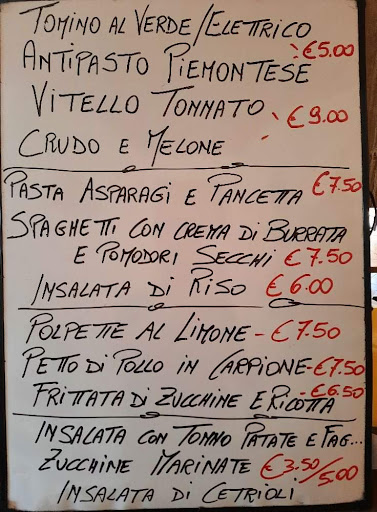 TOMINO AL VERDE/ELETTRICO
ANTIPASTO PIEMONTESE €5.00
VITELLO TONNATO
CRUDO E MELONE €9.00
PASTA ASPARAGI E PANCETTA €7.50
SPAGHETTI CON CREMA DI BURRATA
E POMODORI SECCHI €7.50
INSALATA DI RISO €6.00
POLPETTE AL LIMONE - €7.50
PETTO DI POLLO IN CARPIONE - €7.50
FRITTATA DI ZUCCHINE E RICOTTA - €6.50
INSALATA CON TONNO PATATE E FAG...
ZUCCHINE MARINATE €3.50/5.00
INSALATA DI CETRIOLI